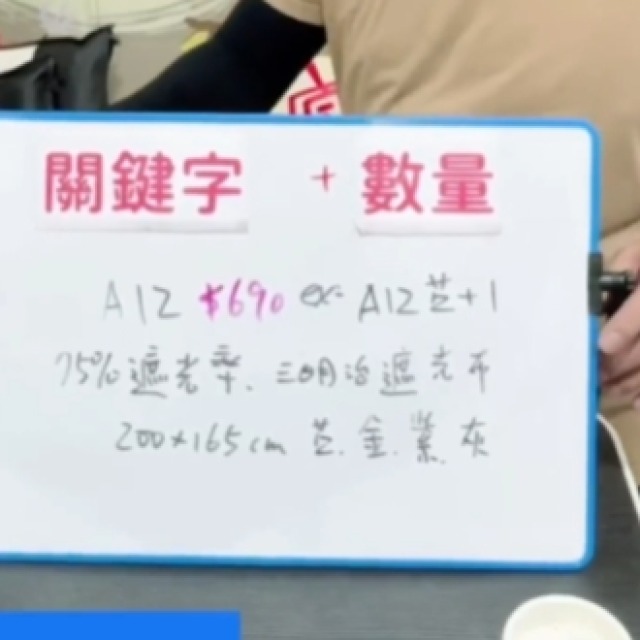 關鍵字 + 數量
A12 $690 ex- A12芷+1
75%遮光率、三明治遮光布
200×165cm 芷.金.業.灰